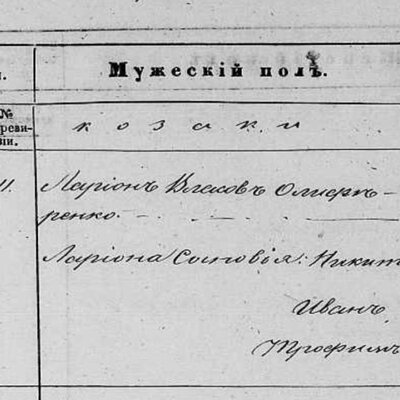 Мужескій полъ.
№
реви-
зіи.
козаки
11. Ларіонъ Власовъ Олифи-
ренко.
Ларіона Сыновія: Никит
Иванъ
Трофимъ